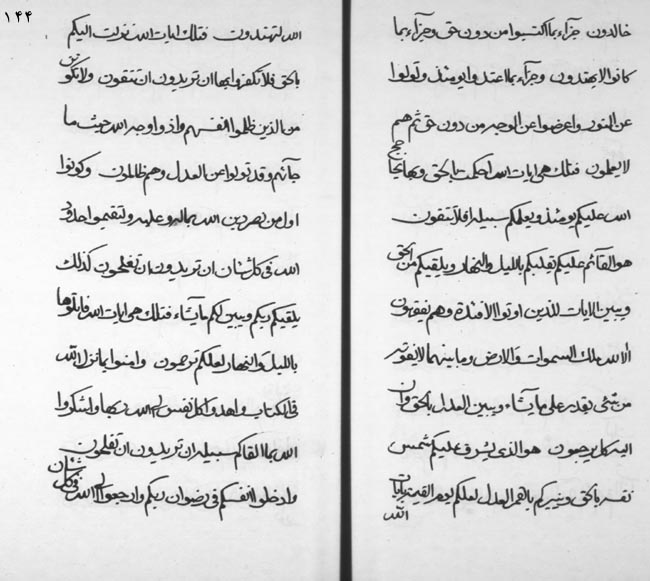 خالدون جزآء بما اكتسبوا من دون حق وجزآء بما
كانوا لا يهتدون وجزآء بما اعتدوا يومئذ وتولوا
عن النور واعرضوا عن الوجه من دون حق ثم هم
لا يعلمون فتلك هى ايات الله احكمت بالحق وبها يحتج
الله عليكم يومئذ ويعلمكم سبيله افلا تتقون
هو القآئم عليكم تقلبكم بالليل والنهار ويلقيكم من الحق
ويبين الايات للذين اوتوا الافئدة وهم يفقهون
الا لله ملك السموات والارض وما بينهما لا يفوته
من شئ يقدر على ما يشآء ويبين العدل بالحق وان
اليه كل يرجعون هو الذى يشرق عليكم شمس
نفسه بالحق ويخبركم بالعدل لعلكم يوم القيمة بايات
الله
١٤٤
الله لتهتدون فتلك ايات الله نزلت اليكم
بالحق فلا تكفروا بها ان تريدون ان تتقون ولا تكونن
من الذين ظلموا انفسهم واذوا وجه الله حيث ما
جآئهم وقد تولوا عن العدل وهم ظالمون وكونوا
اول من دين الله ولتقيموا حدود
الله فى كل شان ان تريدون ان تفلحون كذلك
يلقيكم ربكم ويبين لكم ما يشآء فتلك هى ايات الله فاتلوها
بالليل والنهار لعلكم ترحمون وامنوا بما نزل الله
فى الكتاب واهدوا كل نفس الى الله ربها واشكروا
الله بما القاكم سبيله ان تريدون ان تفلحون
وادخلوا انفسكم فى رضوان ربكم وارجعوا الى الله فى كل شان